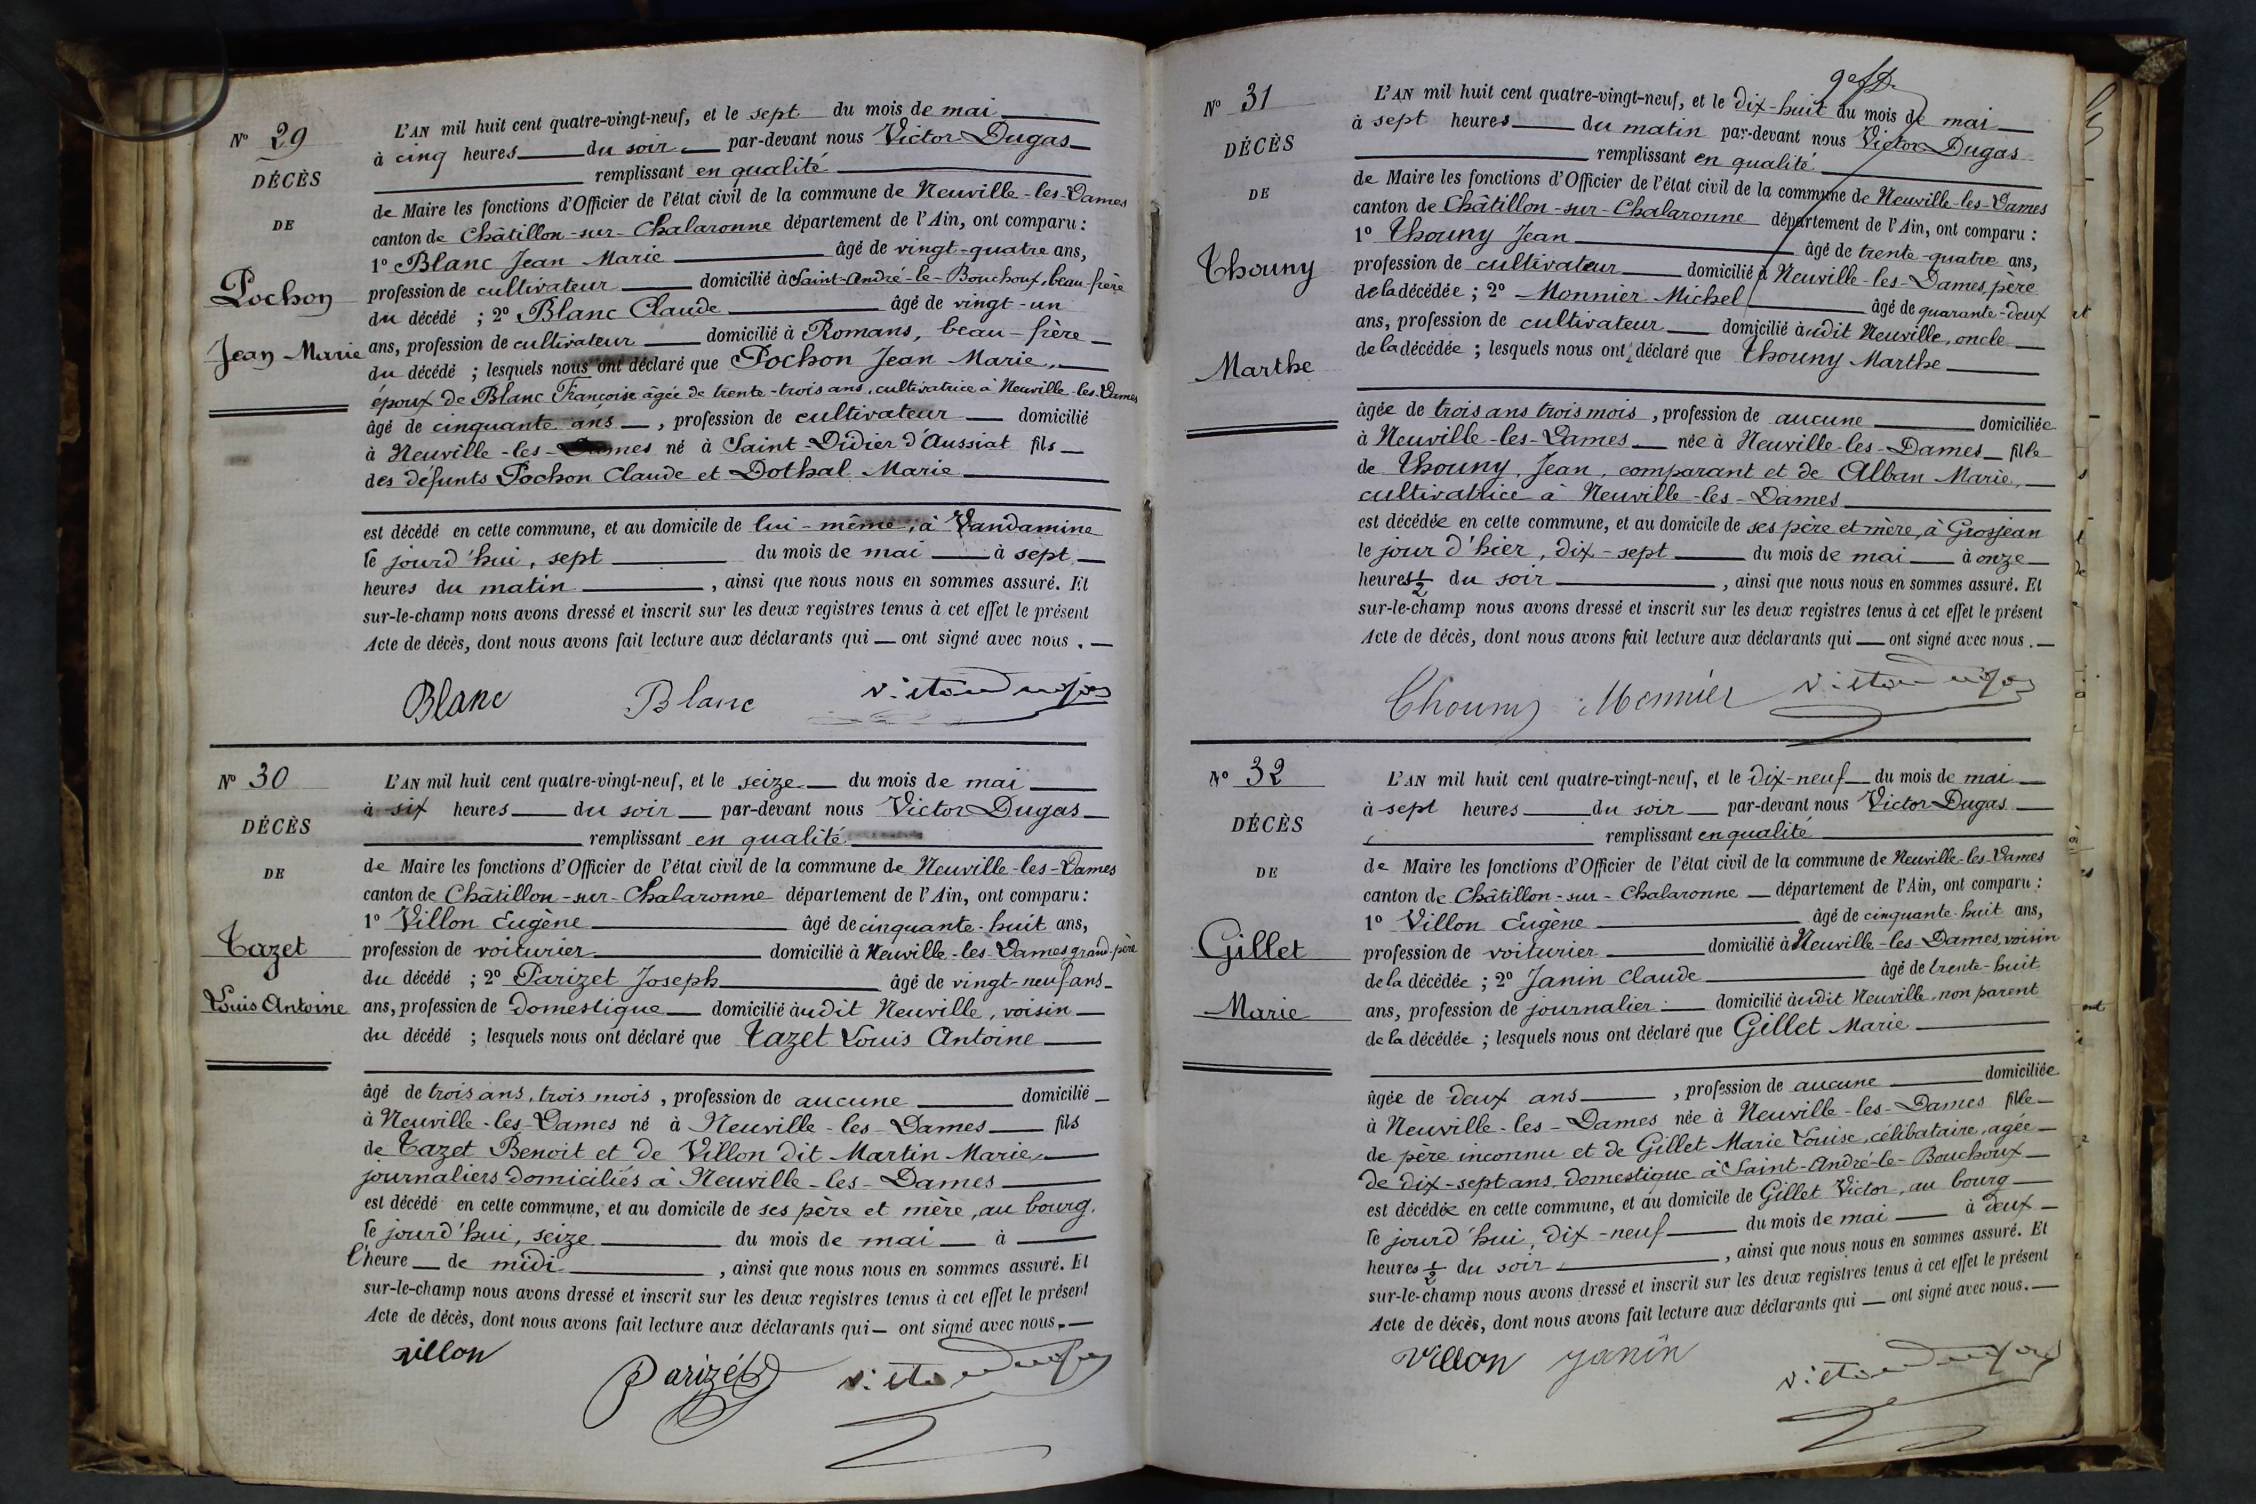 Nº 29
DÉCÈS
DE
Pochon
Jean Marie
L'AN mil huit cent quatre-vingt-neuf, et le sept du mois de mai
à cinq heures du soir par-devant nous Victor Dugas
remplissant en qualité
de Maire les fonctions d'Officier de l'état civil de la commune de Neuville-les-Dames
canton de Châtillon-sur-Chalaronne département de l'Ain, ont comparu :
1º Blanc Jean Marie âgé de vingt-quatre ans,
profession de cultivateur domicilié à Saint-André-le-Bouchoux, beau-frère
du décédé ; 2º Blanc Claude âgé de vingt-un
ans, profession de cultivateur domicilié à Romans, beau-frère
du décédé ; lesquels nous ont déclaré que Pochon Jean Marie,
époux de Blanc Françoise âgée de trente-trois ans, cultivatrice à Neuville-les-Dames
âgé de cinquante ans, profession de cultivateur domicilié
à Neuville-les-Dames né à Saint-Didier d'Aussiat fils
des défunts Pochon Claude et Dothal Marie
est décédé en cette commune, et au domicile de lui-même, à Vandamine
le jourd'hui, sept du mois de mai à sept
heures du matin, ainsi que nous nous en sommes assuré. Et
sur-le-champ nous avons dressé et inscrit sur les deux registres tenus à cet effet le présent
Acte de décès, dont nous avons fait lecture aux déclarants qui ont signé avec nous.
Blanc Blanc Victor Dugas
Nº 30
DÉCÈS
DE
Tazet
Louis Antoine
L'AN mil huit cent quatre-vingt-neuf, et le seize du mois de mai
à six heures du soir par-devant nous Victor Dugas
remplissant en qualité
de Maire les fonctions d'Officier de l'état civil de la commune de Neuville-les-Dames
canton de Châtillon-sur-Chalaronne département de l'Ain, ont comparu :
1º Villon Eugène âgé de cinquante-huit ans,
profession de voiturier domicilié à Neuville-les-Dames, grand-père
du décédé ; 2º Parizet Joseph âgé de vingt-neuf ans
ans, profession de domestique domicilié audit Neuville, voisin
du décédé ; lesquels nous ont déclaré que Tazet Louis Antoine
âgé de trois ans, trois mois, profession de aucune domicilié
à Neuville-les-Dames né à Neuville-les-Dames fils
de Tazet Benoit et de Villon dit Martin Marie,
journaliers domiciliés à Neuville-les-Dames
est décédé en cette commune, et au domicile de ses père et mère, au bourg,
le jourd'hui, seize du mois de mai à
l'heure de midi, ainsi que nous nous en sommes assuré. Et
sur-le-champ nous avons dressé et inscrit sur les deux registres tenus à cet effet le présent
Acte de décès, dont nous avons fait lecture aux déclarants qui ont signé avec nous.
villon Parizet Victor Dugas
Nº 31
DÉCÈS
DE
Thouny
Marthe
L'AN mil huit cent quatre-vingt-neuf, et le dix-huit du mois de mai
à sept heures du matin par-devant nous Victor Dugas
remplissant en qualité
de Maire les fonctions d'Officier de l'état civil de la commune de Neuville-les-Dames
canton de Châtillon-sur-Chalaronne département de l'Ain, ont comparu :
1º Thouny Jean âgé de trente-quatre ans,
profession de cultivateur domicilié à Neuville-les-Dames, père
de la décédée ; 2º Monnier Michel âgé de quarante-deux
ans, profession de cultivateur domicilié audit Neuville, oncle
de la décédée ; lesquels nous ont déclaré que Thouny Marthe
âgée de trois ans trois mois, profession de aucune domiciliée
à Neuville-les-Dames née à Neuville-les-Dames fille
de Thouny, Jean, comparant et de Alban Marie,
cultivatrice à Neuville-les-Dames
est décédée en cette commune, et au domicile de ses père et mère, à Grosjean
le jour d'hier, dix-sept du mois de mai à onze
heures 1/2 du soir, ainsi que nous nous en sommes assuré. Et
sur-le-champ nous avons dressé et inscrit sur les deux registres tenus à cet effet le présent
Acte de décès, dont nous avons fait lecture aux déclarants qui ont signé avec nous.
Thouny Monnier Victor Dugas
Nº 32
DÉCÈS
DE
Gillet
Marie
L'AN mil huit cent quatre-vingt-neuf, et le dix-neuf du mois de mai
à sept heures du soir par-devant nous Victor Dugas
remplissant en qualité
de Maire les fonctions d'Officier de l'état civil de la commune de Neuville-les-Dames
canton de Châtillon-sur-Chalaronne département de l'Ain, ont comparu :
1º Villon Eugène âgé de cinquante-huit ans,
profession de voiturier domicilié à Neuville-les-Dames, voisin
de la décédée ; 2º Janin Claude âgé de trente-huit
ans, profession de journalier domicilié audit Neuville, non parent
de la décédée ; lesquels nous ont déclaré que Gillet Marie
âgée de deux ans, profession de aucune domiciliée
à Neuville-les-Dames née à Neuville-les-Dames fille
de père inconnu et de Gillet Marie Louise, célibataire, agée
de dix-sept ans, domestique à Saint-André-le-Bouchoux
est décédée en cette commune, et au domicile de Gillet Victor, au bourg
le jourd'hui, dix-neuf du mois de mai à deux
heures 1/2 du soir, ainsi que nous nous en sommes assuré. Et
sur-le-champ nous avons dressé et inscrit sur les deux registres tenus à cet effet le présent
Acte de décès, dont nous avons fait lecture aux déclarants qui ont signé avec nous.
Villon Janin Victor Dugas